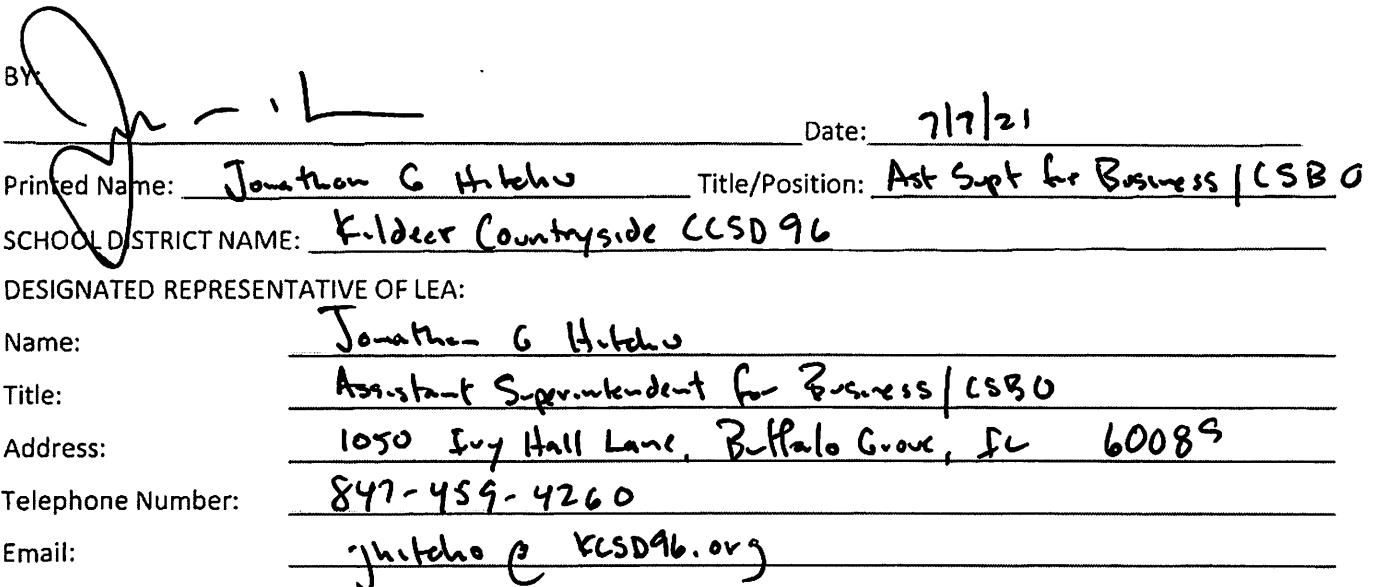 BY:
Date: 7/7/21
Printed Name: Jonathan G Hitcho Title/Position: Ast Supt for Business / CSBO
SCHOOL DISTRICT NAME: Kildeer Countryside CCSD 96
DESIGNATED REPRESENTATIVE OF LEA:
Name: Jonathan G Hitcho
Title: Assistant Superintendent for Business / CSBO
Address: 1050 Ivy Hall Lane, Buffalo Grove, IL 60089
Telephone Number: 847-459-4260
Email: jhitcho@KCSD96.org